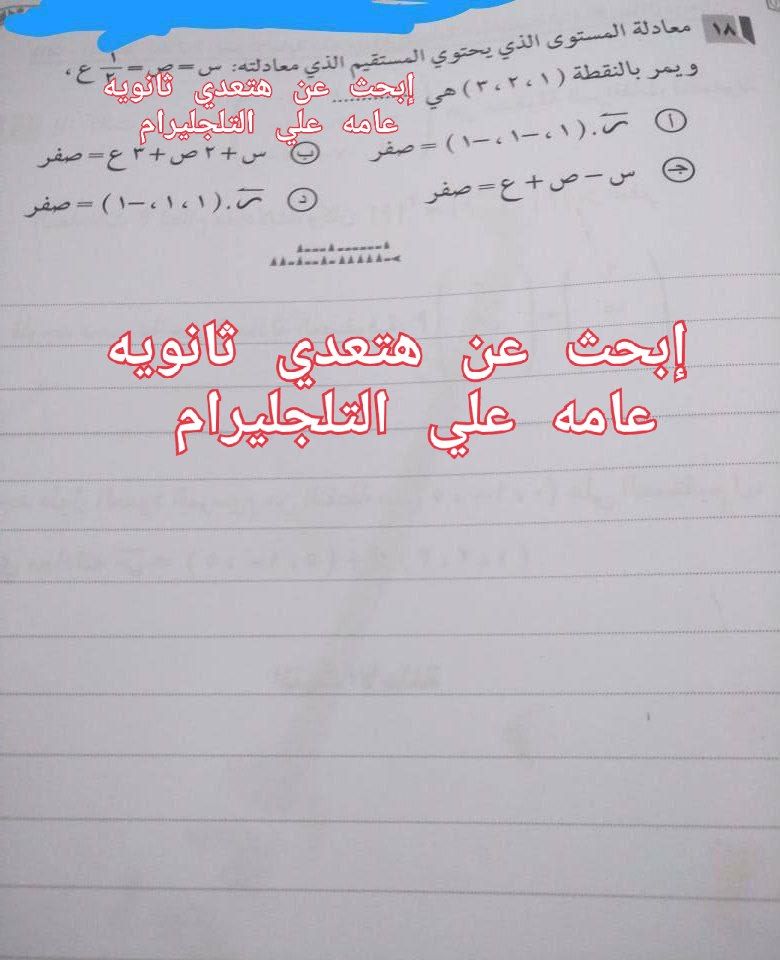 ١٨ معادلة المستوى الذي يحتوي المستقيم الذي معادلته: س = ص = ١/٢ ع ،
ويمر بالنقطة (١ ، ٢ ، ٣) هي ............
إبحث عن هتعدي ثانويه
عامه علي التلجليرام
أ ر . (١ ، -١ ، -١) = صفر
ب س + ٢ ص + ٣ ع = صفر
جـ س - ص + ع = صفر
د ر . (١ ، ١ ، -١) = صفر
إبحث عن هتعدي ثانويه
عامه علي التلجليرام